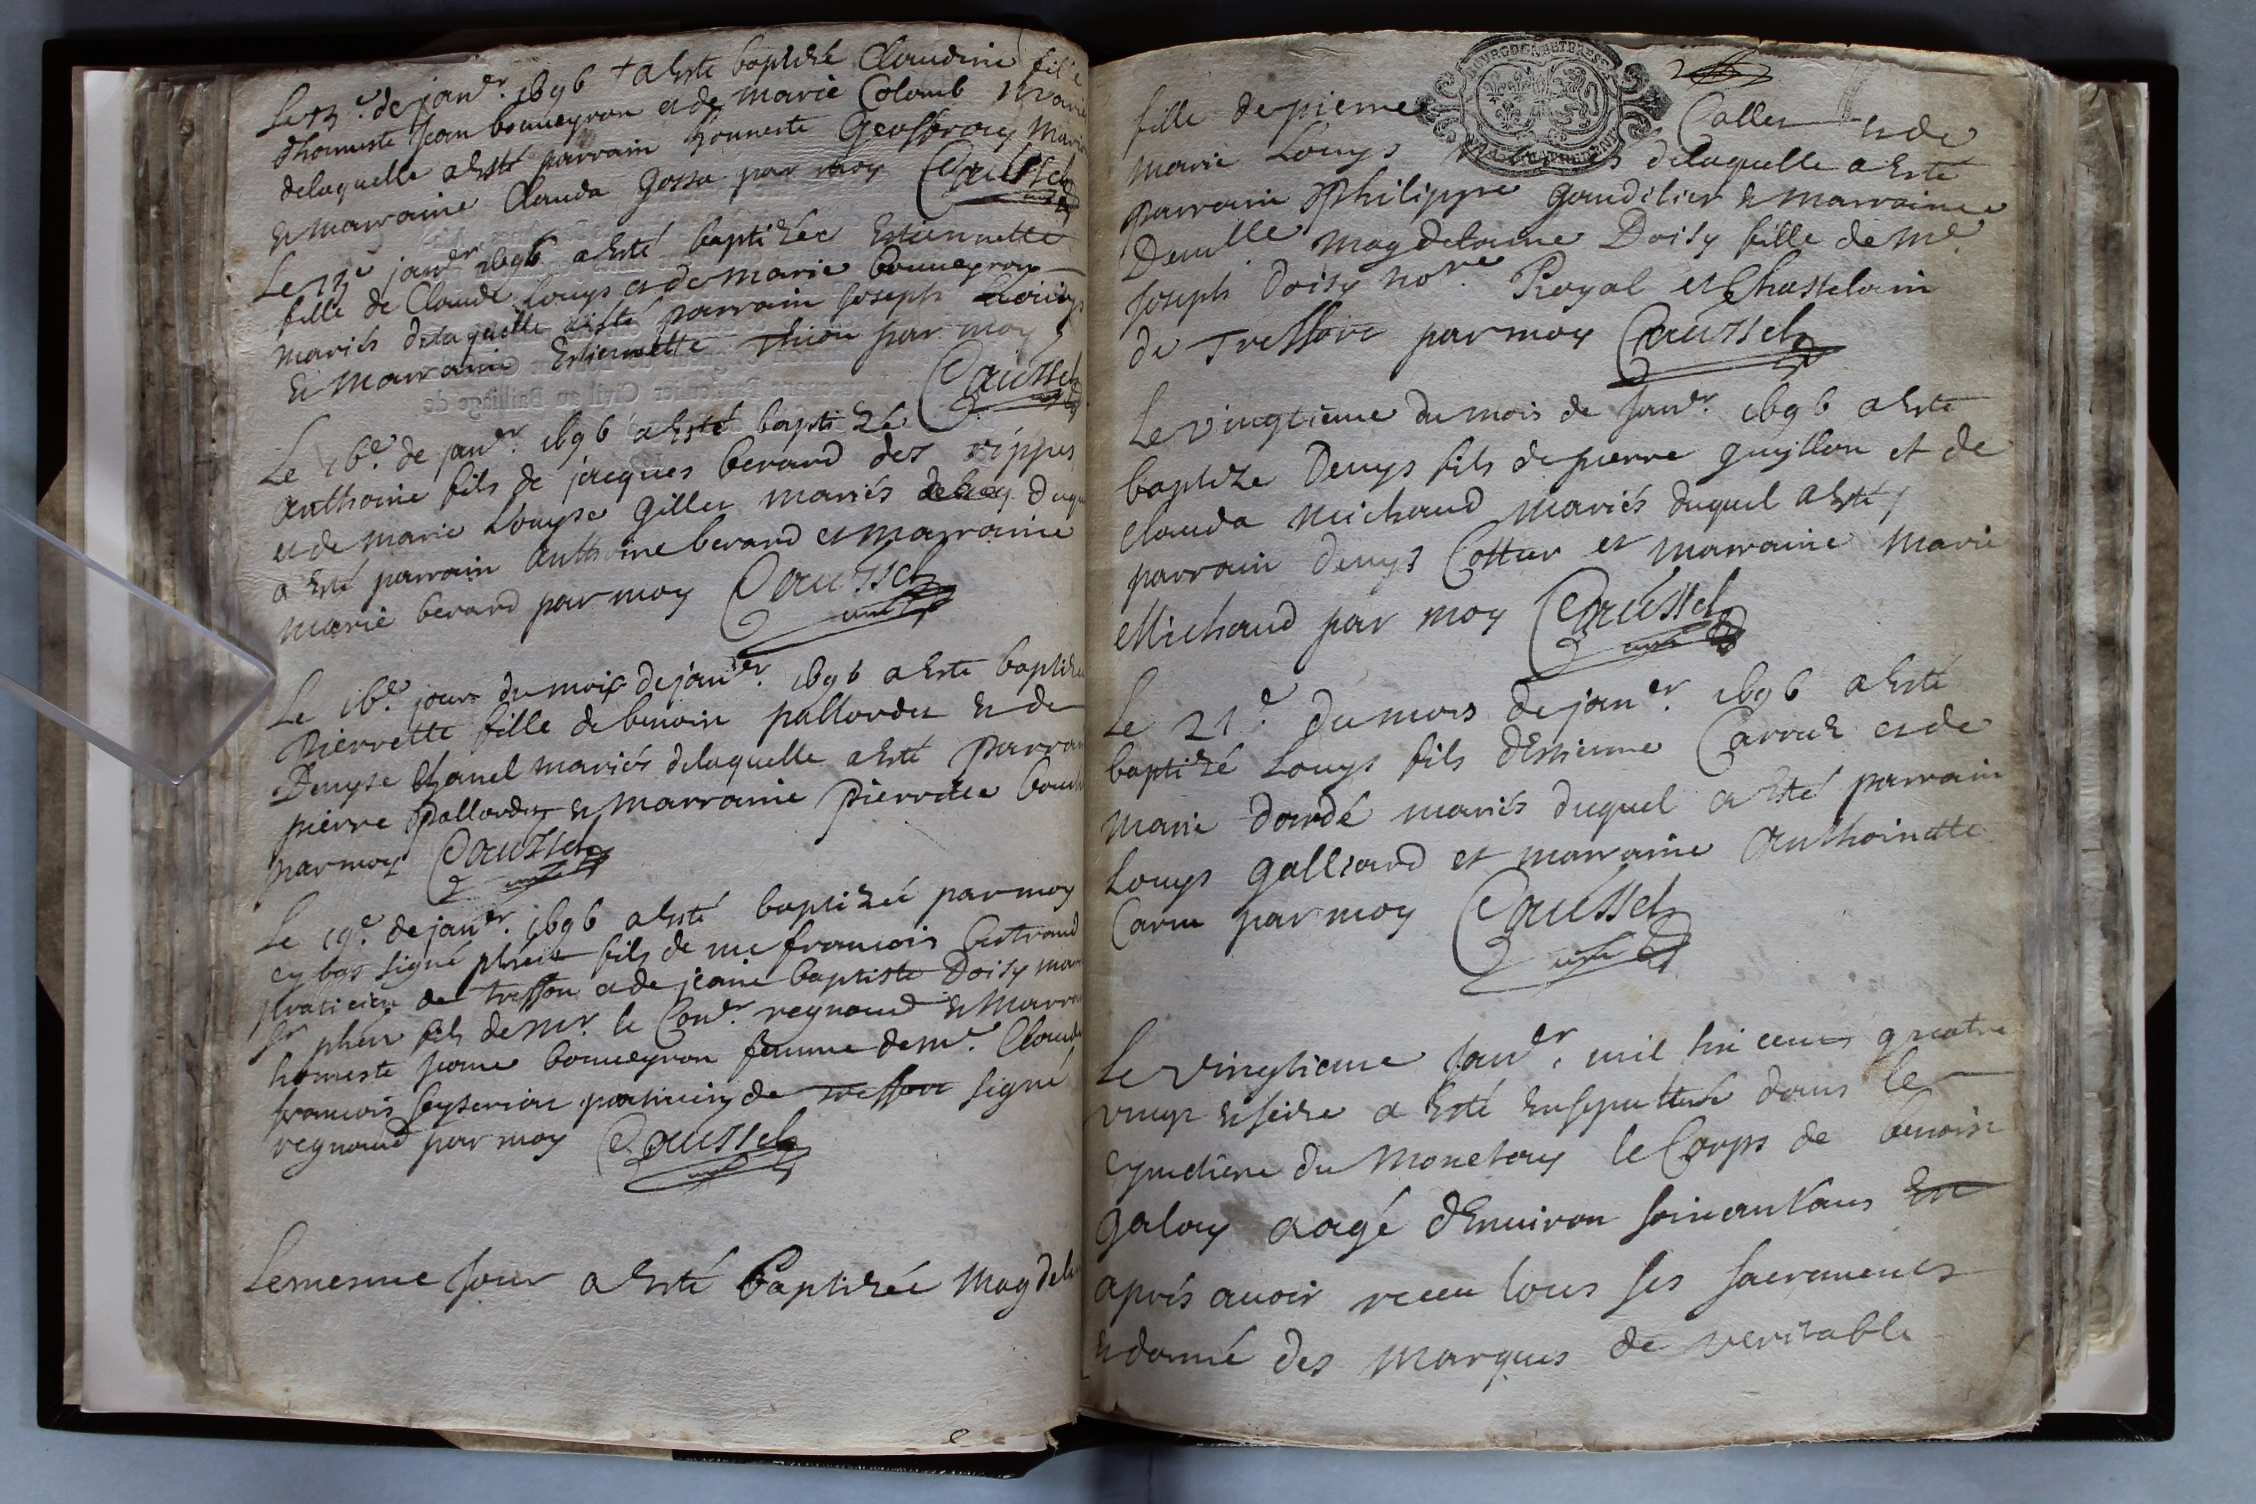 Le 13e de janer 1696 + a esté baptizé Claudine fille
d'honneste Jean bonneyron et de marie Colomb mariés
delaquelle a esté parrain honneste Geoffray
et marraine Clauda gossa par moy Caussel
Le 13e janer 1696 a esté baptizée Estiennette
fille de Claude Louys et de marie bonneyron
mariés delaquelle a esté parrain Joseph
et marraine Estiennette par moy
Caussel
Le 16e de janer 1696 a esté baptizé
anthoine fils de jacques berard des rippes
et de marie Louyse Giller mariés duquel
a esté parrain anthoine berard et marraine
marie berard par moy Caussel
Le 16e jour du mois de janer 1696 a esté baptizée
pierrette fille de benoist pallordet et de
Denyse Chanel mariés delaquelle a esté parrain
pierre pallordet et marraine pierrette
par moy Caussel
Le 19e de janer 1696 a esté baptizée par moy
cy bas signé fils de me francois bertrand
praticien de treffort et de jeanne baptiste Doisy mariés
Sr fils de mr le Coner regnaud et marraine
honneste jeanne bonneyron femme de me Claude
francois seyserian praticien de treffort signé
regnaud par moy Caussel
Lemesme Jour a esté Baptizée Magdelaine
fille de pierre Caller et de
marie Louys mariés delaquelle a esté
parrain Philippe gandilier et marraine
Demlle magdelaine Doisy fille de me
Joseph Doisy nore Royal et Chastelain
de Treffort par moy Caussel
Le vingtieme du mois de Janer 1696 a esté
baptizé Denys fils de pierre guyllon et de
Clauda michaud mariés duquel a esté
parrain denys Cottur et marraine marie
Michaud par moy Caussel
Le 21e du mois de janer 1696 a esté
baptizé Louys fils d'Estienne Carruz et de
marie dandé mariés duquel a esté parrain
Louys galliard et marraine Anthoinette
Carru par moy Caussel
Le vingtieme Janer mil six cens quatre
vingt et seize a esté ensepulturé dans le
cymetiere du Monetay le Corps de benoist
galay aagé d'Environ soixante ans
après avoir receu tous ses sacrements
et donné des marques de veritable